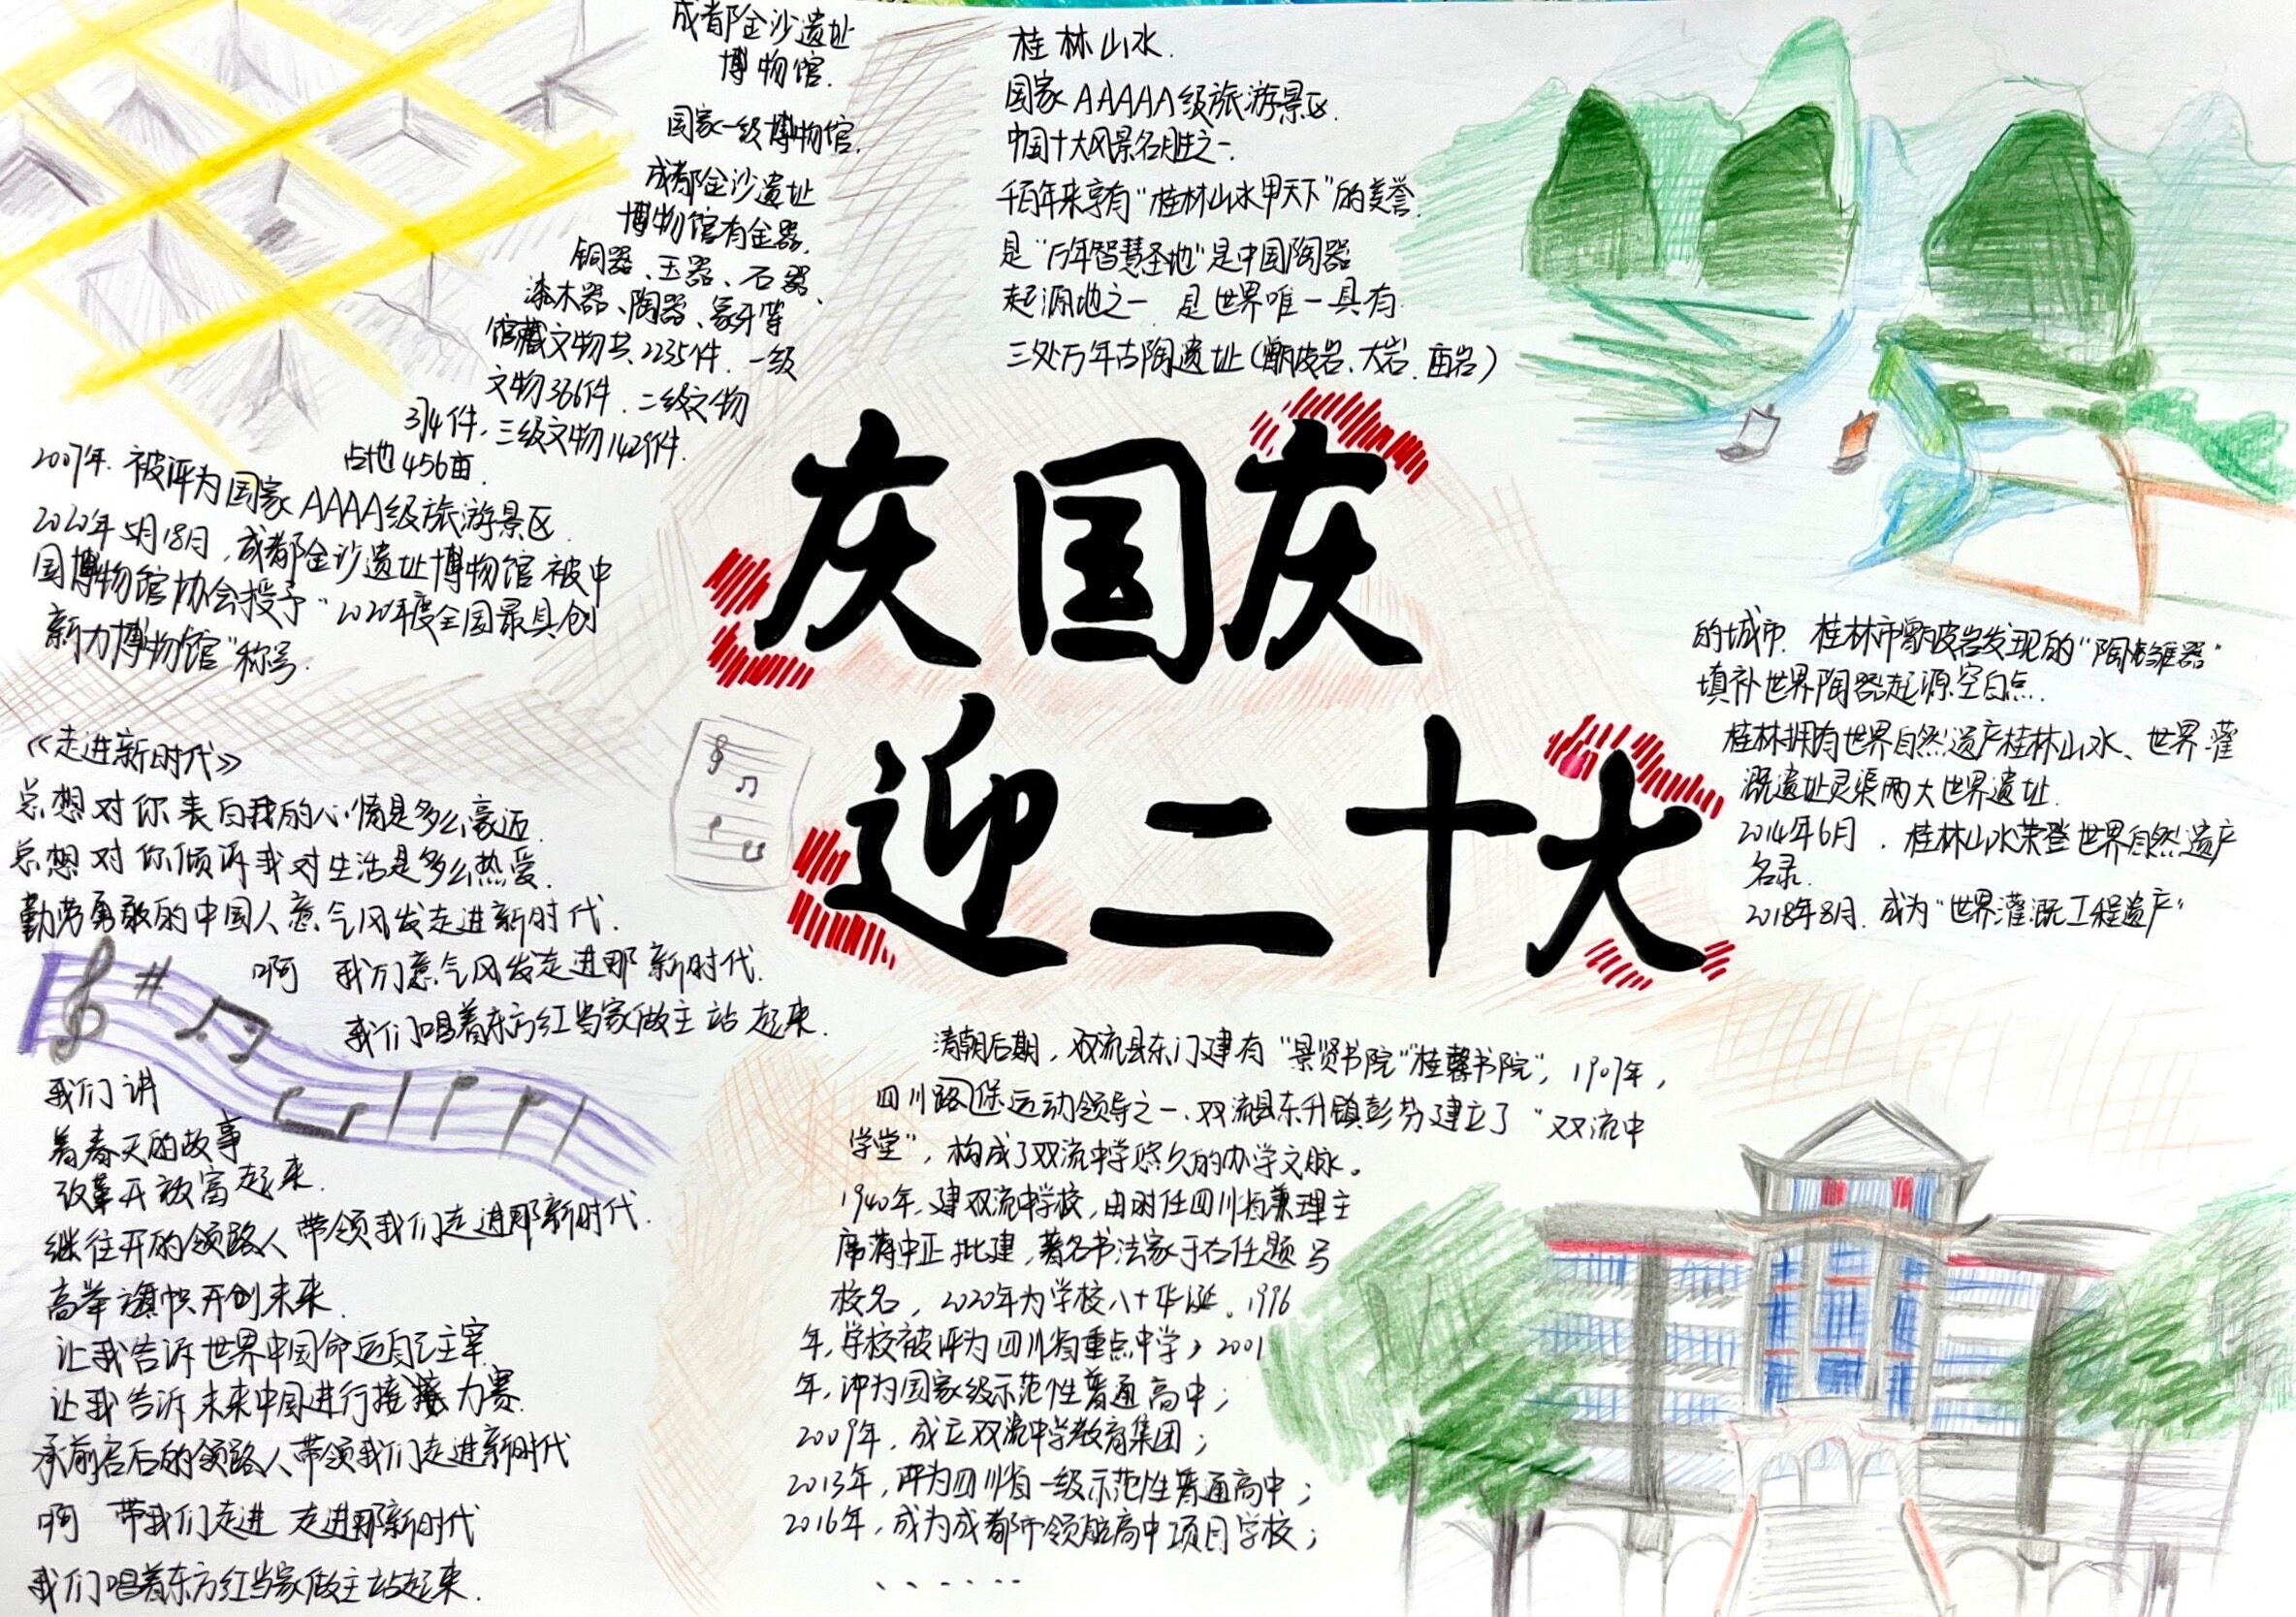 成都金沙遗址
博物馆.
国家一级博物馆.
成都金沙遗址
博物馆有金器,
铜器、玉器、石器、
漆木器、陶器、象牙等
馆藏文物共2235件. 一级
文物366件. 二级文物
374件, 三级文物1429件.
占地456亩.
2007年. 被评为国家AAAA级旅游景区.
2020年5月18日, 成都金沙遗址博物馆被中
国博物馆协会授予“2020年度全国最具创
新力博物馆”称号.
桂林山水.
国家AAAAA级旅游景区.
中国十大风景名胜之一.
千百年来享有“桂林山水甲天下”的美誉.
是“万年智慧圣地”是中国陶器
起源地之一 是世界唯一具有
三处万年古陶遗址(甑皮岩、大岩、庙岩)
的城市. 桂林市甑皮岩发现的“陶雏器”
填补世界陶器起源空白点.
桂林拥有世界自然遗产桂林山水、世界灌
溉遗址灵渠两大世界遗址.
2014年6月, 桂林山水荣登世界自然遗产
名录.
2018年8月. 成为“世界灌溉工程遗产”
庆国庆
迎二十大
《走进新时代》
总想对你表白我的心情是多么豪迈.
总想对你倾诉我对生活是多么热爱.
勤劳勇敢的中国人意气风发走进新时代.
啊 我们意气风发走进那新时代.
我们唱着东方红当家做主站起来.
我们讲
着春天的故事
改革开放富起来.
继往开的领路人带领我们走进那新时代.
高举旗帜开创未来.
让我告诉世界中国命运自己主宰
让我告诉未来中国进行接力赛.
承前启后的领路人带领我们走进新时代
啊 带我们走进 走进那新时代
我们唱着东方红当家做主站起来.
清朝后期, 双流县东门建有“景贤书院”“桂馨书院”, 1907年,
四川路保运动领导之一、双流县东升镇彭芬建立了“双流中
学堂”, 构成了双流中学悠久的办学文脉。
1940年, 建双流中学校, 由时任四川省兼理主
席蒋中正批建, 著名书法家于右任题写
校名, 2020年为学校八十华诞。1996
年, 学校被评为四川省重点中学; 2001
年, 评为国家级示范性普通高中;
2009年, 成立双流中学教育集团;
2013年, 评为四川省一级示范性普通高中;
2016年, 成为成都市领航高中项目学校;
......